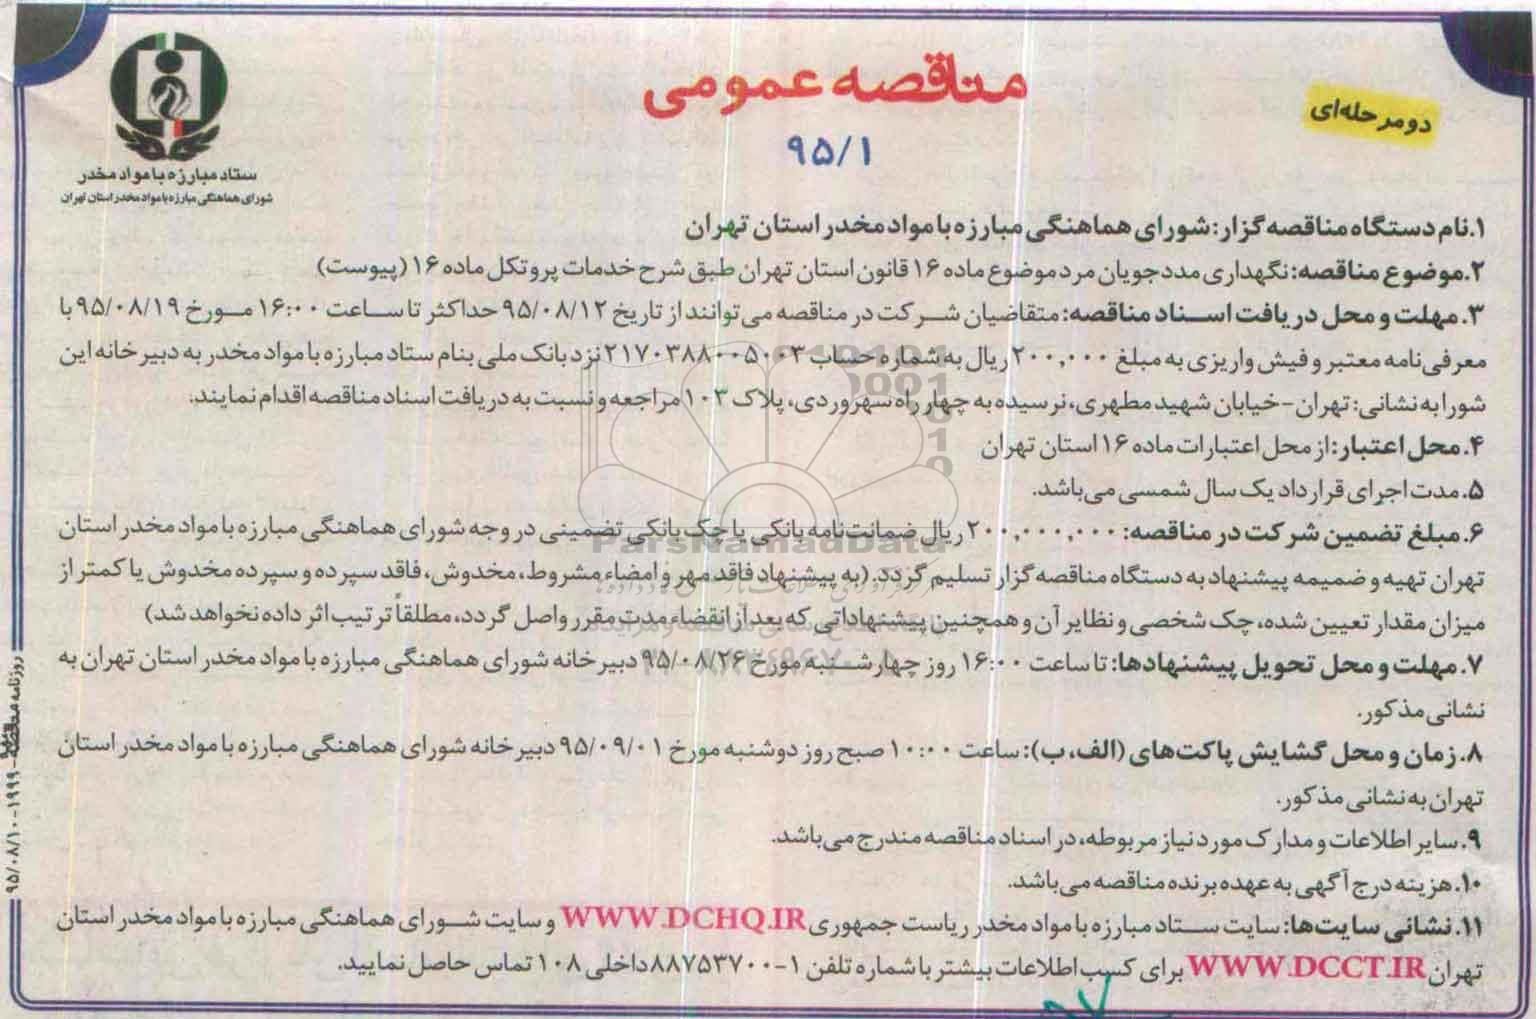 مناقصه عمومی
دو مرحله‌ای
۹۵/۱
ستاد مبارزه با مواد مخدر
شورای هماهنگی مبارزه با مواد مخدر استان تهران
۱. نام دستگاه مناقصه گزار: شورای هماهنگی مبارزه با مواد مخدر استان تهران
۲. موضوع مناقصه: نگهداری مددجویان مرد موضوع ماده ۱۶ قانون استان تهران طبق شرح خدمات پروتکل ماده ۱۶ (پیوست)
۳. مهلت و محل دریافت اسـناد مناقصه: متقاضیان شـرکت در مناقصه می‌توانند از تاریخ ۹۵/۰۸/۱۲ حداکثر تا سـاعت ۱۶:۰۰ مـورخ ۹۵/۰۸/۱۹ با
معرفی‌نامه معتبر و فیش واریزی به مبلغ ۲۰۰,۰۰۰ ریال به شماره حساب ۲۱۷۰۳۸۸۰۰۵۰۰۳ نزد بانک ملی بنام ستاد مبارزه با مواد مخدر به دبیرخانه این
شورا به نشانی: تهران - خیابان شهید مطهری، نرسیده به چهارراه سهروردی، پلاک ۱۰۳ مراجعه و نسبت به دریافت اسناد مناقصه اقدام نمایند.
۴. محل اعتبار: از محل اعتبارات ماده ۱۶ استان تهران
۵. مدت اجرای قرارداد یک سال شمسی می‌باشد.
۶. مبلغ تضمین شرکت در مناقصه: ۲۰۰,۰۰۰,۰۰۰ ریال ضمانت‌نامه بانکی یا چک بانکی تضمینی در وجه شورای هماهنگی مبارزه با مواد مخدر استان
تهران تهیه و ضمیمه پیشنهاد به دستگاه مناقصه گزار تسلیم گردد. (به پیشنهاد فاقد مهر و امضاء، مشروط، مخدوش، فاقد سپرده و سپرده مخدوش یا کمتر از
میزان مقدار تعیین شده، چک شخصی و نظایر آن و همچنین پیشنهاداتی که بعد از انقضاء مدت مقرر واصل گردد، مطلقاً ترتیب اثر داده نخواهد شد)
۷. مهلت و محل تحویل پیشنهادها: تا ساعت ۱۶:۰۰ روز چهارشـنبه مورخ ۹۵/۰۸/۲۶ دبیرخانه شورای هماهنگی مبارزه با مواد مخدر استان تهران به
نشانی مذکور.
۸. زمان و محل گشایش پاکت‌های (الف، ب): ساعت ۱۰:۰۰ صبح روز دوشنبه مورخ ۹۵/۰۹/۰۱ دبیرخانه شورای هماهنگی مبارزه با مواد مخدر استان
تهران به نشانی مذکور.
۹. سایر اطلاعات و مدارک مورد نیاز مربوطه، در اسناد مناقصه مندرج می‌باشد.
۱۰. هزینه درج آگهی به عهده برنده مناقصه می‌باشد.
۱۱. نشانی سایت‌ها: سایت سـتاد مبارزه با مواد مخدر ریاست جمهوری WWW.DCHQ.IR و سایت شـورای هماهنگی مبارزه با مواد مخدر استان
تهران WWW.DCCT.IR برای کسب اطلاعات بیشتر با شماره تلفن ۱-۸۸۷۵۳۷۰۰ داخلی ۱۰۸ تماس حاصل نمایید.
ParsNamadData
روزنامه مناقصه - ۱۹۹۹ - ۹۵/۰۸/۱۰